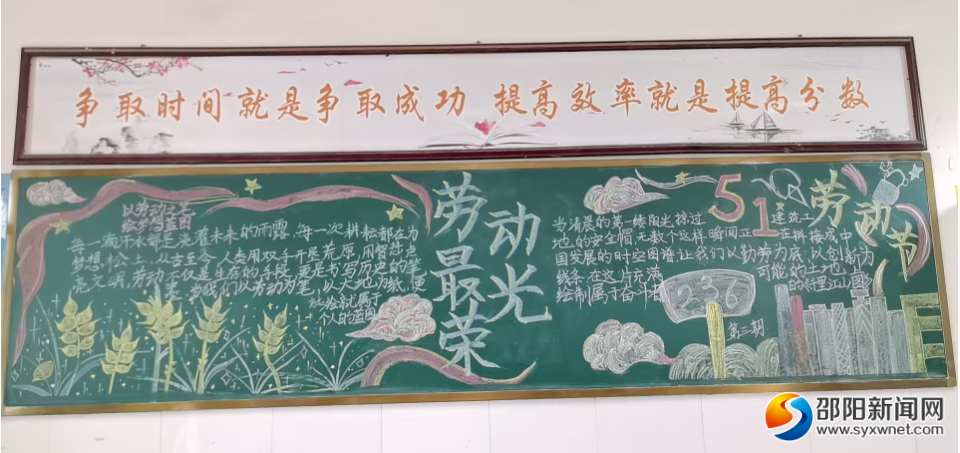 争取时间就是争取成功 提高效率就是提高分数
以劳动之名
绘梦想蓝图
每一滴汗水都是浇灌未来的雨露、每一次耕耘都在为
梦想
从古至今,人类用双手开垦荒原,用智慧点
亮文明,劳动不仅是生存的手段,更是书写历史的笔
我们以劳动为笔,以大地为纸,便
绘就属于
个人的蓝图
劳动最光荣
当清晨的第一缕阳光掠过
建筑工
地的安全帽,无数个这样瞬间正在拼接成中
国发展的时空图谱让我们以勤劳为底,以创新为
线条,在这片充满
可能的土地上
绘制属于奋斗者
的千里江山图
51
劳动节
236
第三期
邵阳新闻网
www.syxwnet.com